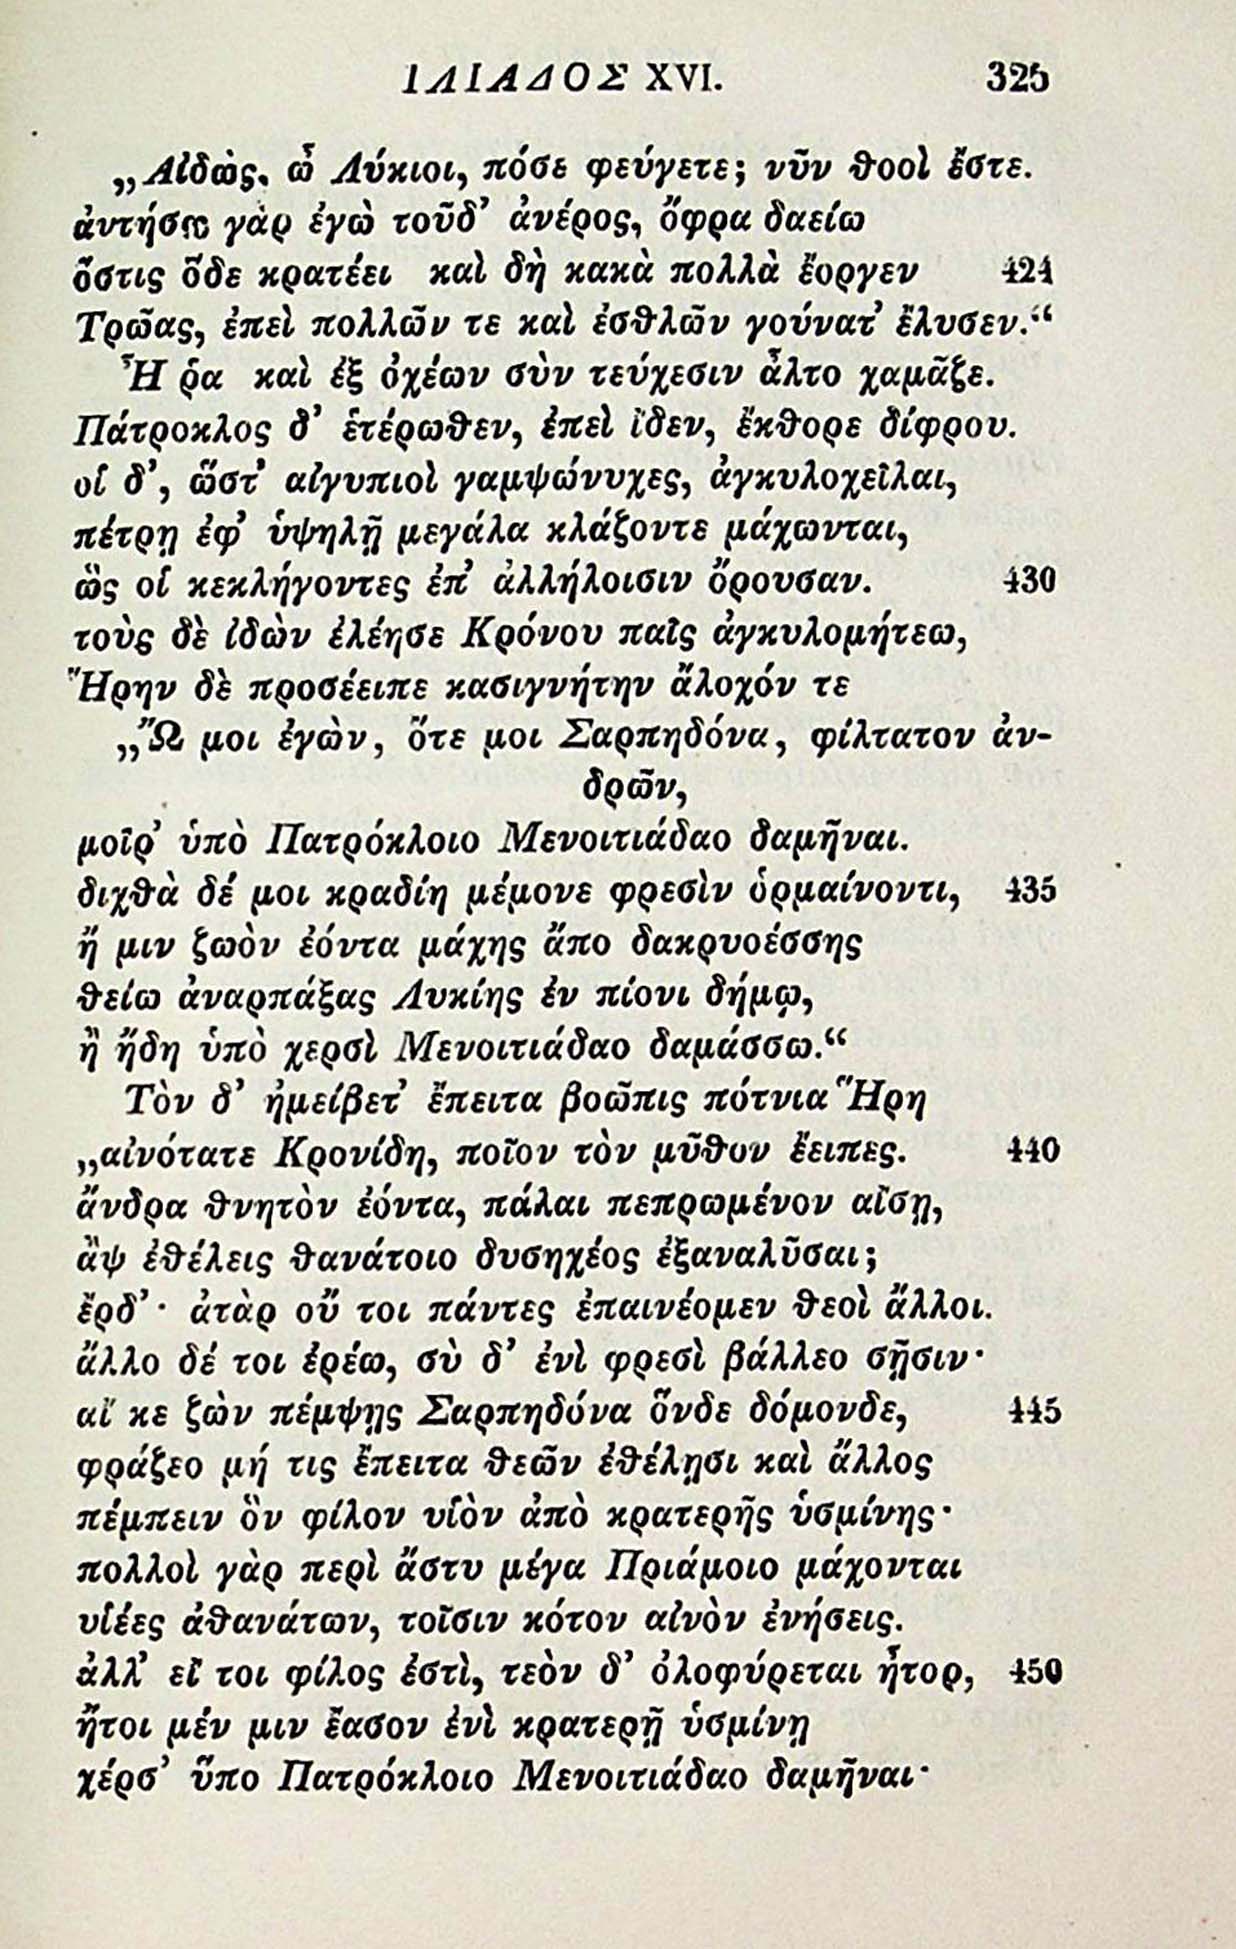 ΙΛΙΑΔΟΣ XVI. 325
„Αἰδώς, ὦ Λύκιοι, πόσε φεύγετε; νῦν θοοὶ ἔστε.
ἀντήσω γὰρ ἐγὼ τοῦδ’ ἀνέρος, ὄφρα δαείω
ὅστις ὅδε κρατέει καὶ δὴ κακὰ πολλὰ ἔοργεν 424
Τρῶας, ἐπεὶ πολλῶν τε καὶ ἐσθλῶν γούνατ’ ἔλυσεν.“
Ἦ ῥα καὶ ἐξ ὀχέων σὺν τεύχεσιν ἆλτο χαμᾶζε.
Πάτροκλος δ’ ἑτέρωθεν, ἐπεὶ ἴδεν, ἔκθορε δίφρου.
οἱ δ’, ὥστ’ αἰγυπιοὶ γαμψώνυχες, ἀγκυλοχεῖλαι,
πέτρῃ ἐφ’ ὑψηλῇ μεγάλα κλάζοντε μάχωνται,
ὣς οἱ κεκλήγοντες ἐπ’ ἀλλήλοισιν ὄρουσαν. 430
τοὺς δὲ ἰδὼν ἐλέησε Κρόνου παῖς ἀγκυλομήτεω,
Ἥρην δὲ προσέειπε κασιγνήτην ἄλοχόν τε
„Ὤ μοι ἐγὼν, ὅτε μοι Σαρπηδόνα, φίλτατον ἀν-
δρῶν,
μοῖρ’ ὑπὸ Πατρόκλοιο Μενοιτιάδαο δαμῆναι.
διχθὰ δέ μοι κραδίη μέμονε φρεσὶν ὁρμαίνοντι, 435
ἤ μιν ζωὸν ἐόντα μάχης ἄπο δακρυοέσσης
θείω ἀναρπάξας Λυκίης ἐν πίονι δήμῳ,
ἢ ἤδη ὑπὸ χερσὶ Μενοιτιάδαο δαμάσσω.“
Τὸν δ’ ἠμείβετ’ ἔπειτα βοῶπις πότνια Ἥρη
„αἰνότατε Κρονίδη, ποῖον τὸν μῦθον ἔειπες. 440
ἄνδρα θνητὸν ἐόντα, πάλαι πεπρωμένον αἴσῃ,
ἂψ ἐθέλεις θανάτοιο δυσηχέος ἐξαναλῦσαι;
ἔρδ’· ἀτὰρ οὔ τοι πάντες ἐπαινέομεν θεοὶ ἄλλοι.
ἄλλο δέ τοι ἐρέω, σὺ δ’ ἐνὶ φρεσὶ βάλλεο σῇσιν·
αἴ κε ζὼν πέμψῃς Σαρπηδόνα ὅνδε δόμονδε, 445
φράζεο μή τις ἔπειτα θεῶν ἐθέλῃσι καὶ ἄλλος
πέμπειν ὃν φίλον υἱὸν ἀπὸ κρατερῆς ὑσμίνης·
πολλοὶ γὰρ περὶ ἄστυ μέγα Πριάμοιο μάχονται
υἱέες ἀθανάτων, τοῖσιν κότον αἰνὸν ἐνήσεις.
ἀλλ’ εἴ τοι φίλος ἐστὶ, τεὸν δ’ ὀλοφύρεται ἦτορ, 450
ἤτοι μέν μιν ἔασον ἐνὶ κρατερῇ ὑσμίνῃ
χέρσ’ ὕπο Πατρόκλοιο Μενοιτιάδαο δαμῆναι·